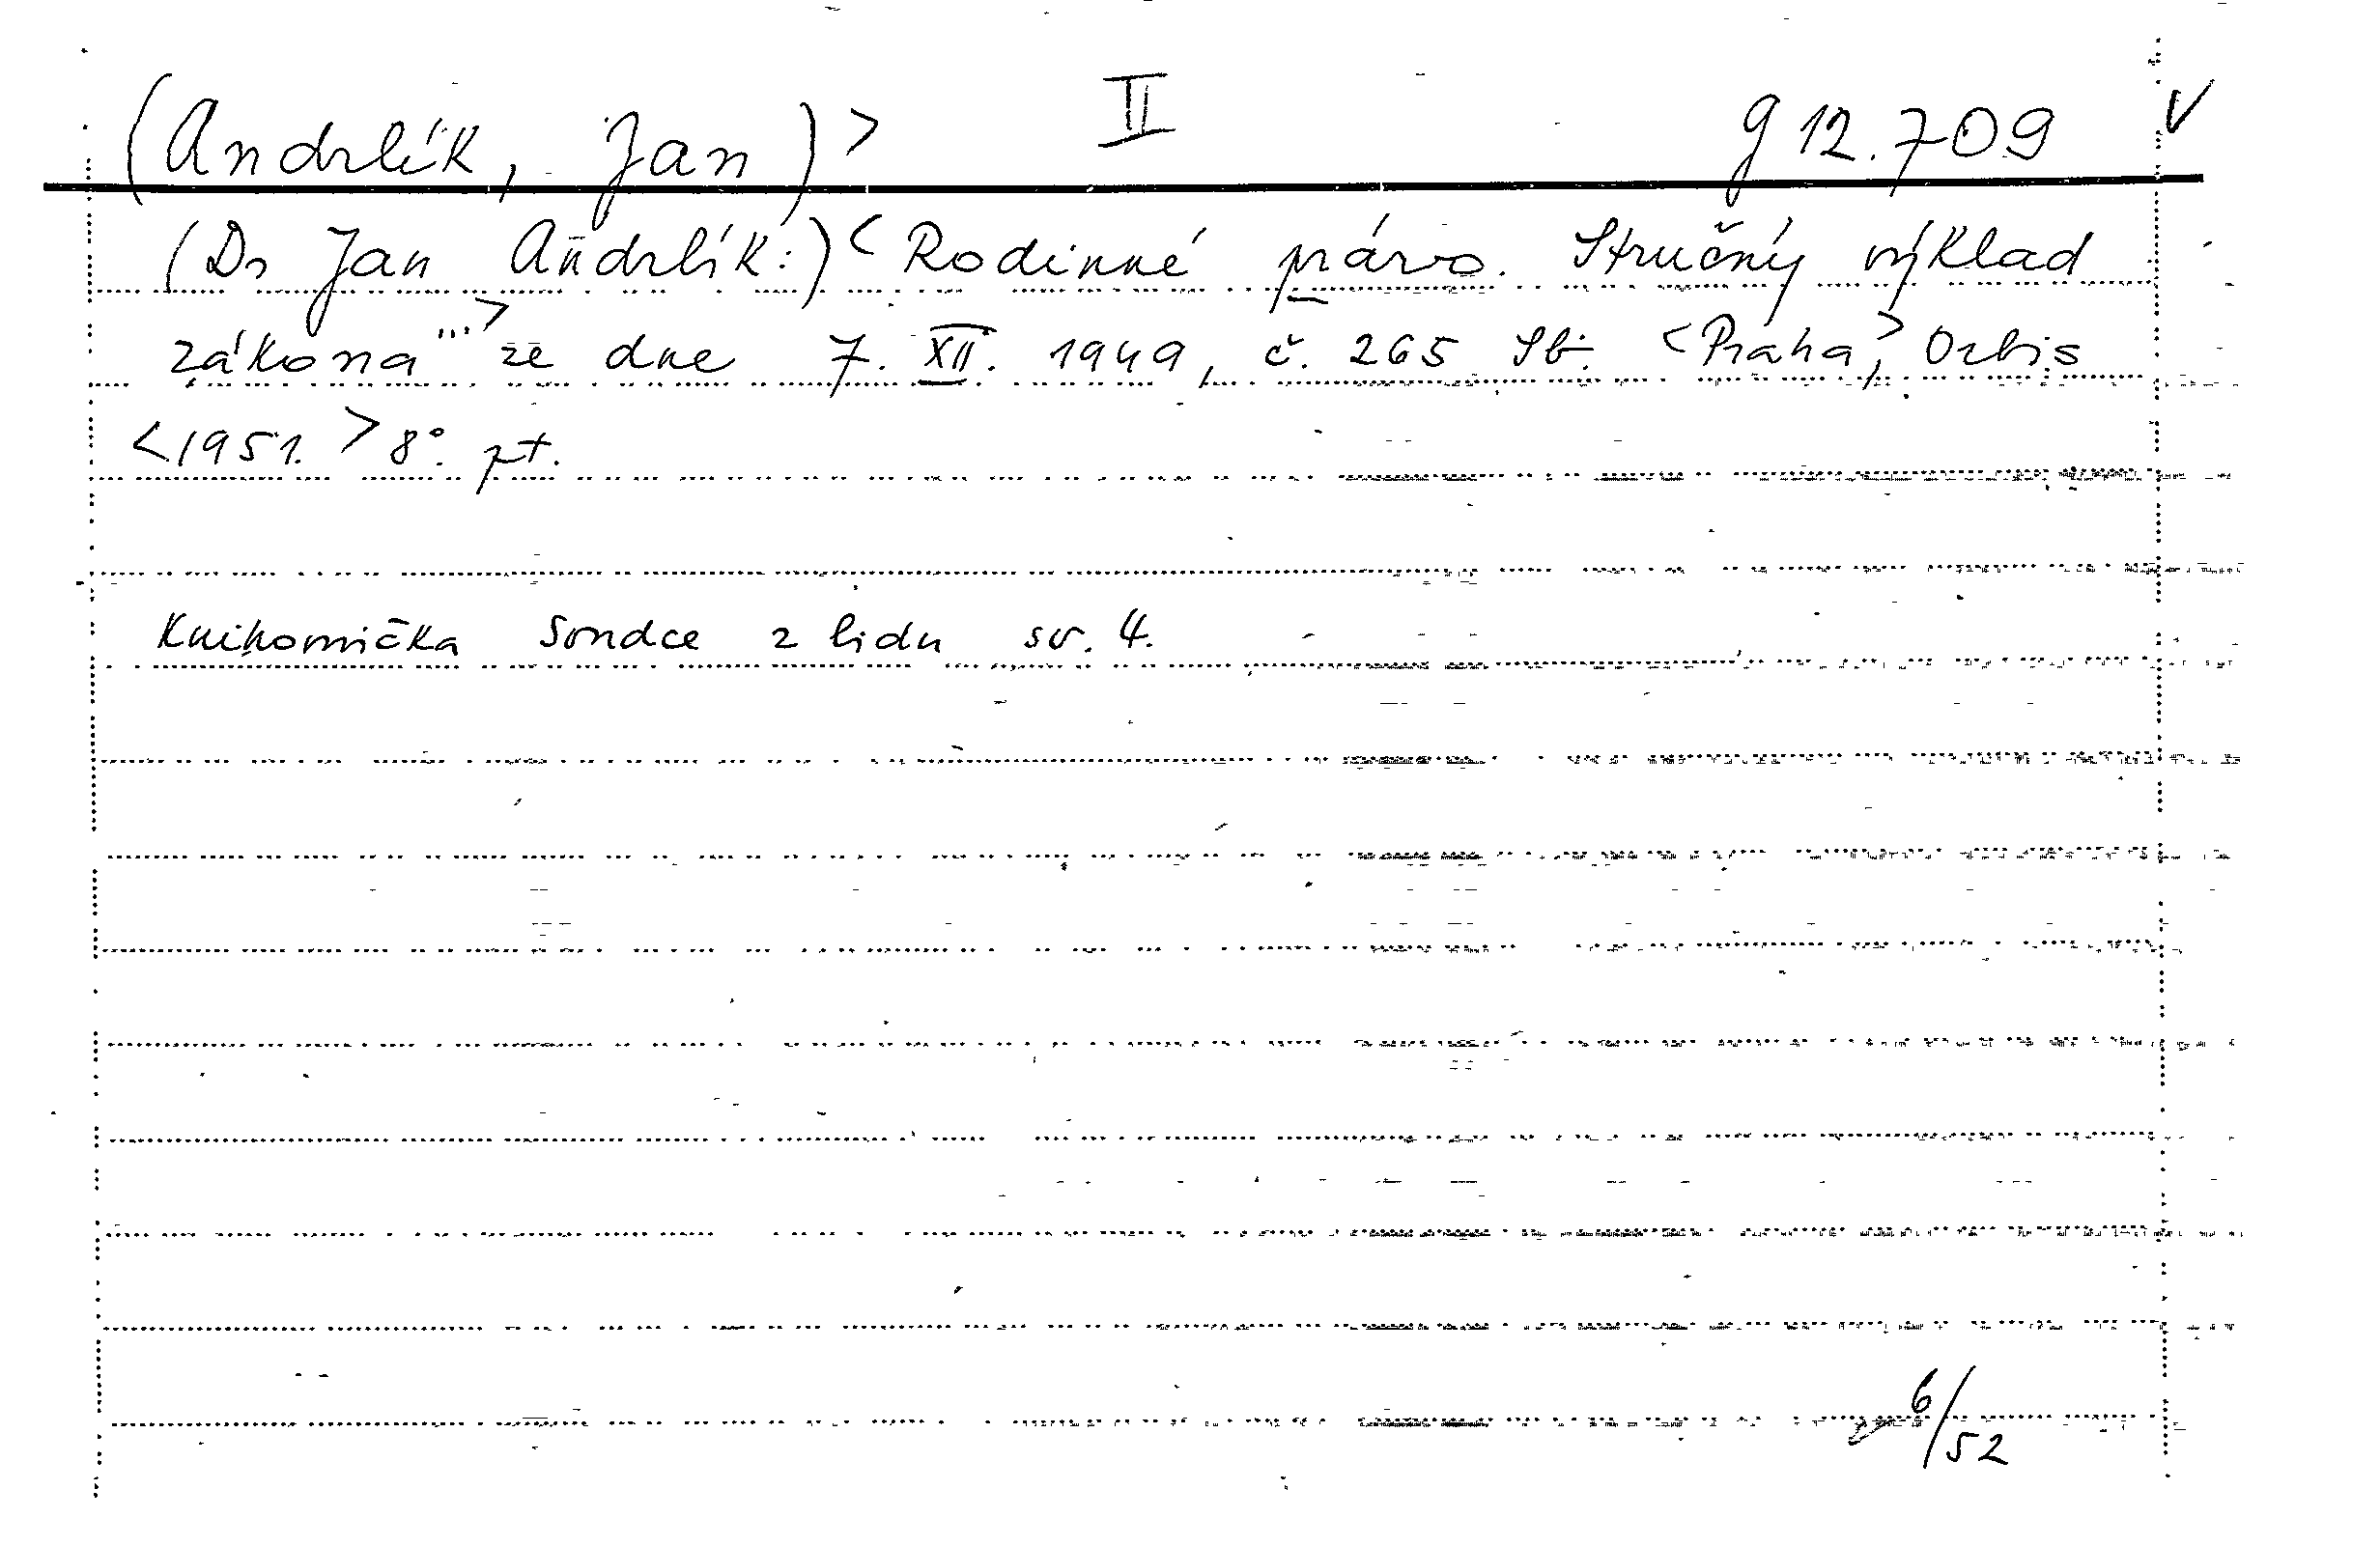 (Andrlík, Jan)> II g 12.709 V
(Dr Jan Andrlík:)< Rodinné právo. Stručný výklad
zákona...> ze dne 7. XII. 1949, č. 265 Sb. <Praha,> Orbis
<1951.> 8°. pt.
Knihovnička Soudce z lidu sv. 4.
6/52